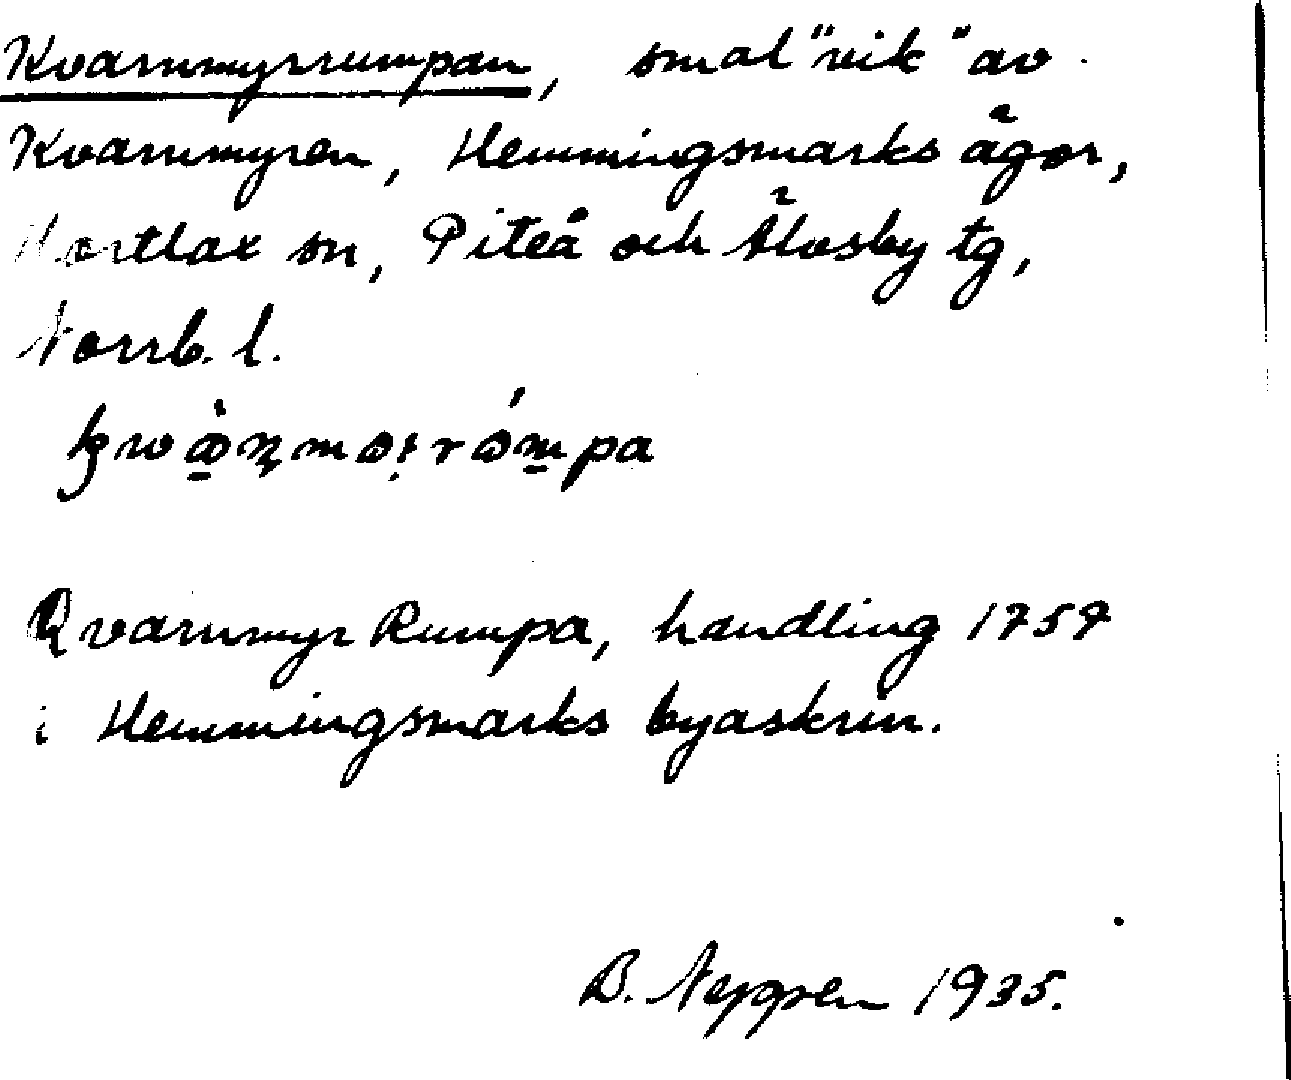 Kvarnmyrrumpan, smal "vik" av
Kvarnmyren, Hemmingsmarks ägor,
Hortlax sn, Piteå och Älvsby tg,
Norrb. l.
Qvarnmyr Rumpa, handling 1757
i Hemmingsmarks byaskrin.
B. Nygren 1935.